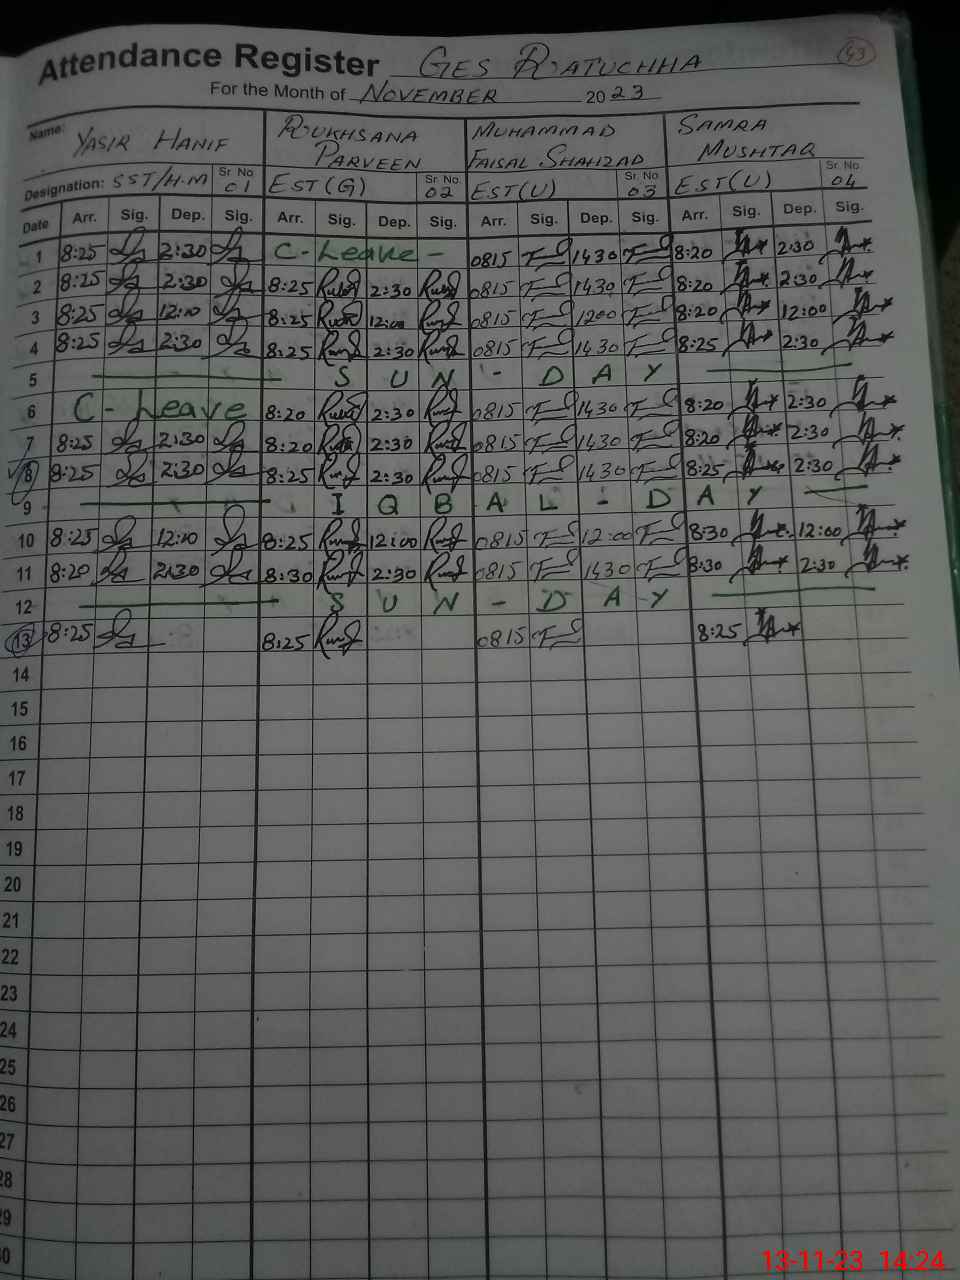 43
Attendance Register GES RATUCHHA
For the Month of NOVEMBER 2023
Name: YASIR HANIF RUKHSANA PARVEEN MUHAMMAD FAISAL SHAHZAD SAMRA MUSHTAQ
Designation: SST/H.M Sr. No. 01 EST(G) Sr. No. 02 EST(U) Sr. No. 03 EST(U) Sr. No. 04
Date Arr. Sig. Dep. Sig. Arr. Sig. Dep. Sig. Arr. Sig. Dep. Sig. Arr. Sig. Dep. Sig.
1 8:25 2:30 C-Leave - 0815 1430 8:20 2:30
2 8:25 2:30 8:25 2:30 0815 1430 8:20 2:30
3 8:25 12:00 8:25 12:00 0815 1200 8:20 12:00
4 8:25 2:30 8:25 2:30 0815 1430 8:25 2:30
5 SUN - DAY
6 C- Leave 8:20 2:30 0815 1430 8:20 2:30
7 8:25 2:30 8:20 2:30 0815 1430 8:20 2:30
8 8:25 2:30 8:25 2:30 0815 1430 8:25 2:30
9 IQBAL - DAY
10 8:25 12:00 8:25 12:00 0815 12:00 8:30 12:00
11 8:20 2:30 8:30 2:30 0815 1430 8:30 2:30
12 SUN - DAY
13 8:25 8:25 0815 8:25
14
15
16
17
18
19
20
21
22
23
24
25
26
27
28
29
30
13-11-23 14:24